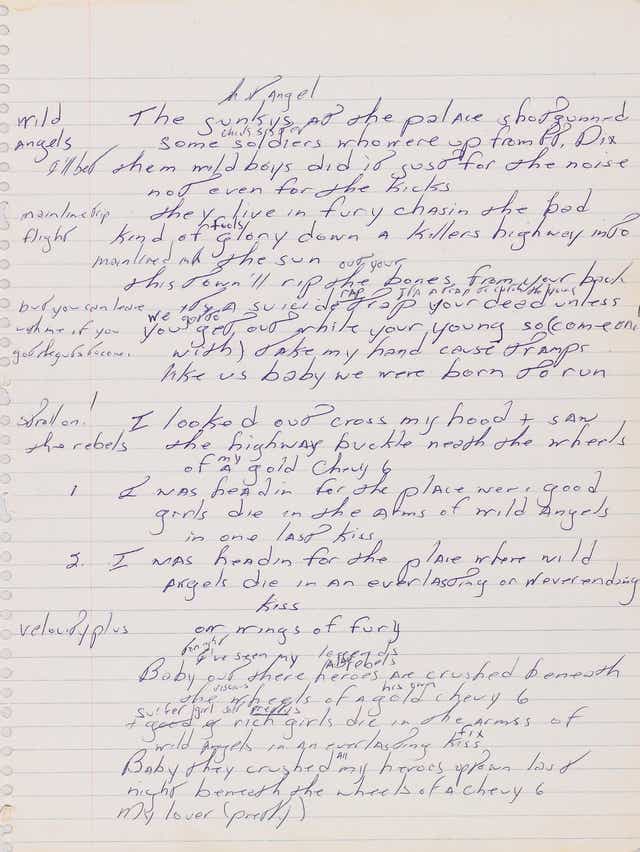 Angel
wild The gunboys at the palace shotgunned
Angels some soldiers who were up from Ft. Dix
I'll bet them wild boys did it just for the noise
not even for the kicks
mainline trip they live in fury chasin the bad
fools
flight kind of glory down a killers highway into
mainlined the sun
out your
this town'll rip the bones from your back
rap
but you can leave its a suicide trap your dead unless
we gotta
with me if you you get out while your young so (come on
with) take my hand cause tramps
like us baby we were born to run
stroll on! I looked out cross my hood + saw
the rebels the highway buckle neath the wheels
my
of a gold Chevy 6
1 I was headin for the place were good
girls die in the arms of wild Angels
in one last kiss
2. I was headin for the place where wild
Angels die in an everlasting or neverending
kiss
velocity plus on wings of fury
tonight I've seen my legends
rebels
Baby out there heroes are crushed beneath
his own
the wheels of a gold chevy 6
girl
+ good rich girls die in the armss of
fix
wild Angels in an everlasting kiss
all
Baby they crushed my heroes uptown last
night beneath the wheels of a Chevy 6
My lover (pretty)